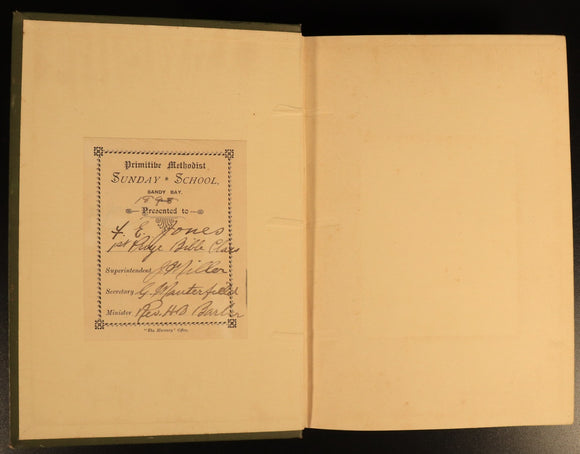 Primitive Methodist
SUNDAY * SCHOOL,
SANDY BAY.
Presented to
E. Jones
1st Prize Bible Class
Superintendent J. Miller
Secretary G.
Minister Rev. H.D. Barber
"The Mercury" Office.